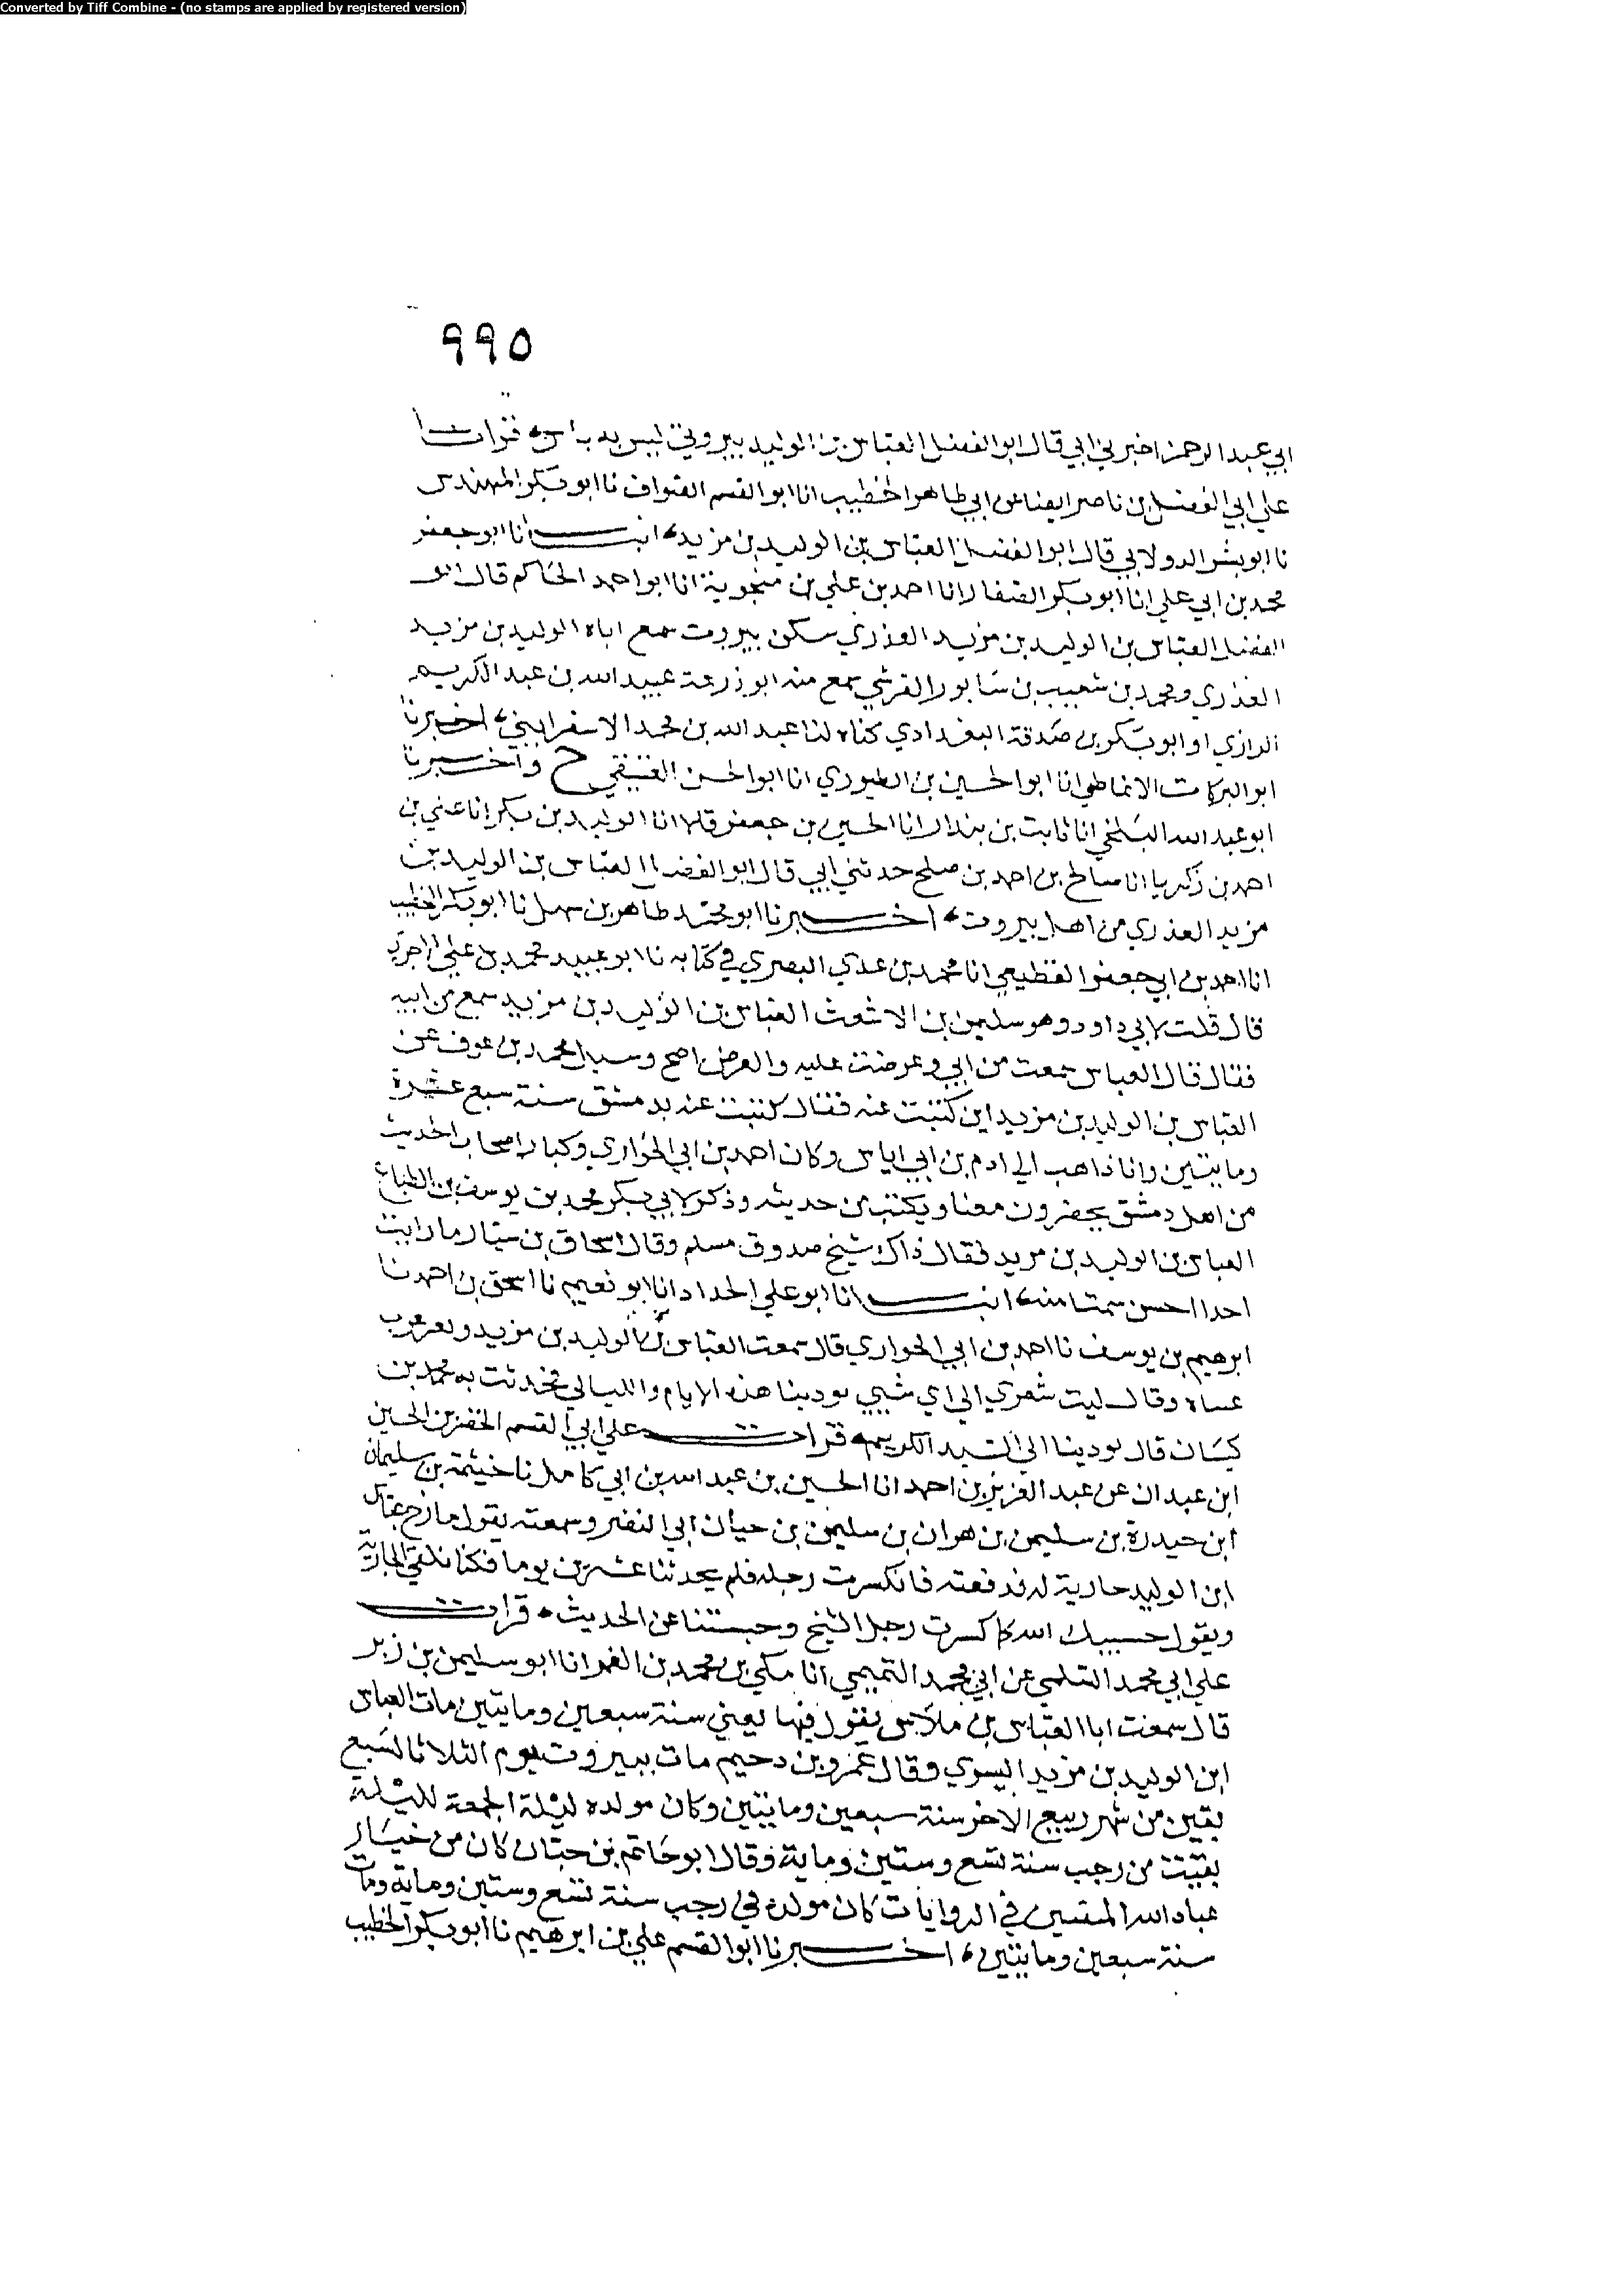 Converted by Tiff Combine - (no stamps are applied by registered version)
٩٩٥
ابي عبد الرحمن اخبرني ابي قال ابو الفضل العباس بن الوليد بيروتي ليس به باس قرات
علي ابي الفضل بن ناصر ايضا عن ابي طاهر الخطيب انا ابو القسم الصواف نا ابو بكر المهندس
نا ابو بشر الدولابي قال ابو الفضل العباس بن الوليد بن مزيد انبانا ابو جعفر
محمد بن ابي علي انا ابو بكر الصفار انا احمد بن علي بن منجوية انا ابو احمد الحاكم قال ابو
الفضل العباس بن الوليد بن مزيد العذري سكن بيروت سمع اباه الوليد بن مزيد
العذري ومحمد بن شعيب بن شابور القرشي سمع منه ابو زرعة عبيد الله بن عبد الكريم
الرازي او ابو بكر بن صدقة البغدادي كناه لنا عبد الله بن محمد الاسفرايني اخبرنا
ابو البركات الانماطي انا ابو الحسين بن الطيوري انا ابو الحسن العتيقي ح واخبرنا
ابو عبد الله البلخي انا ثابت بن بندار انا الحسين بن جعفر قالا انا الوليد بن بكر انا علي بن
احمد بن زكريا انا صالح بن احمد بن صلح حدثني ابي قال ابو الفضل العباس بن الوليد بن
مزيد العذري من اهل بيروت اخبرنا ابو محمد طاهر بن سهل نا ابو بكر الخطيب
انا احمد بن ابي جعفر القطيعي انا محمد بن عدي البصري في كتابه نا ابو عبيد محمد بن علي الاجري
قال قلت لابي داود وهو سليمن بن الاشعث العباس بن الوليد بن مزيد سمع من ابيه
فقال قال العباس سمعت من ابي وعرضت عليه والعرض اصح وسيل محمد بن عوف عن
العباس بن الوليد بن مزيد اين كتبت عنه فقال كتبت عنه بدمشق سنة سبع عشرة
ومايتين وانا ذاهب الى ادم بن ابي اياس وكان احمد بن ابي الحواري وكبار اصحاب الحديث
من اهل دمشق يحضرون معنا ويكتب من حديثه وذكر لابي بكر محمد بن يوسف بن الطباع
العباس بن الوليد بن مزيد فقال ذاك شيخ صدوق مسلم وقال اسحاق بن سيار ما رايت
احدا احسن سمتا منه انبانا ابو علي الحداد انا ابو نعيم نا اسحق بن احمد نا
ابرهيم بن يوسف نا احمد بن ابي الحواري قال سمعت العباس بن الوليد بن مزيد
وقال ليت شعري الى اي شيي يودينا هذه الايام والليالي فحدثت به محمد بن
كيسان قال يودينا الى السيد الكريم قرات علي ابي القسم الخضر بن الحسين
ابن عبدان عن عبد العزيز بن احمد انا الحسين بن عبد الله بن ابي كامل نا خيثمة بن سليمان
ابن حيدرة بن سليمن بن هران بن سليمن بن حيان ابي النضر وسمعته يقول مازح عباس
ابن الوليد جارية له فدفعته فانكسرت رجله فلم يحدثنا عشرين يوما فكنا نلقى الجارية
ويقول حسيبك الله كما كسرت رجل الشيخ وحبستنا عن الحديث قرات
علي ابي محمد السلمي عن ابي محمد التميمي انا مكي بن محمد بن الغمر انا ابو سليمن بن زبر
قال سمعت ابا العباس بن ملاس يقول فيها يعني سنة سبعين ومايتين مات العباس
ابن الوليد بن مزيد البسروي وقال عمرو بن دحيم مات ببيروت يوم الثلاثا لسبع
بقين من شهر ربيع الاخر سنة سبعين ومايتين وكان مولده ليلة الجمعة لليلة
بقيت من رجب سنة تسع وستين وماية وقال ابو حاتم بن حبان كان من خيار
عباد الله المتقين في الروايات كان مولده في رجب سنة تسع وستين وماية ومات
سنة سبعين ومايتين اخبرنا ابو القسم علي بن ابرهيم نا ابو بكر الخطيب